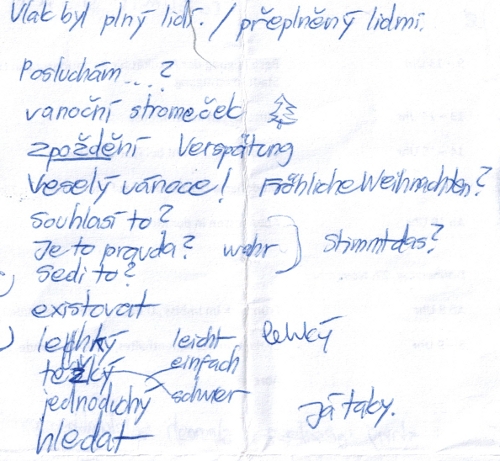 Vlak byl plný lidí. / přeplněný lidmi.
Posluchám...?
vanoční stromeček
zpoždění Verspätung
Veselý vánoce! Fröhliche Weihnachten?
Souhlasí to?
Je to pravda? wahr Stimmt das?
Sedí to?
existovat
lehký leicht lehký
těžký einfach
jednoduchý schwer
hledat Já taky.